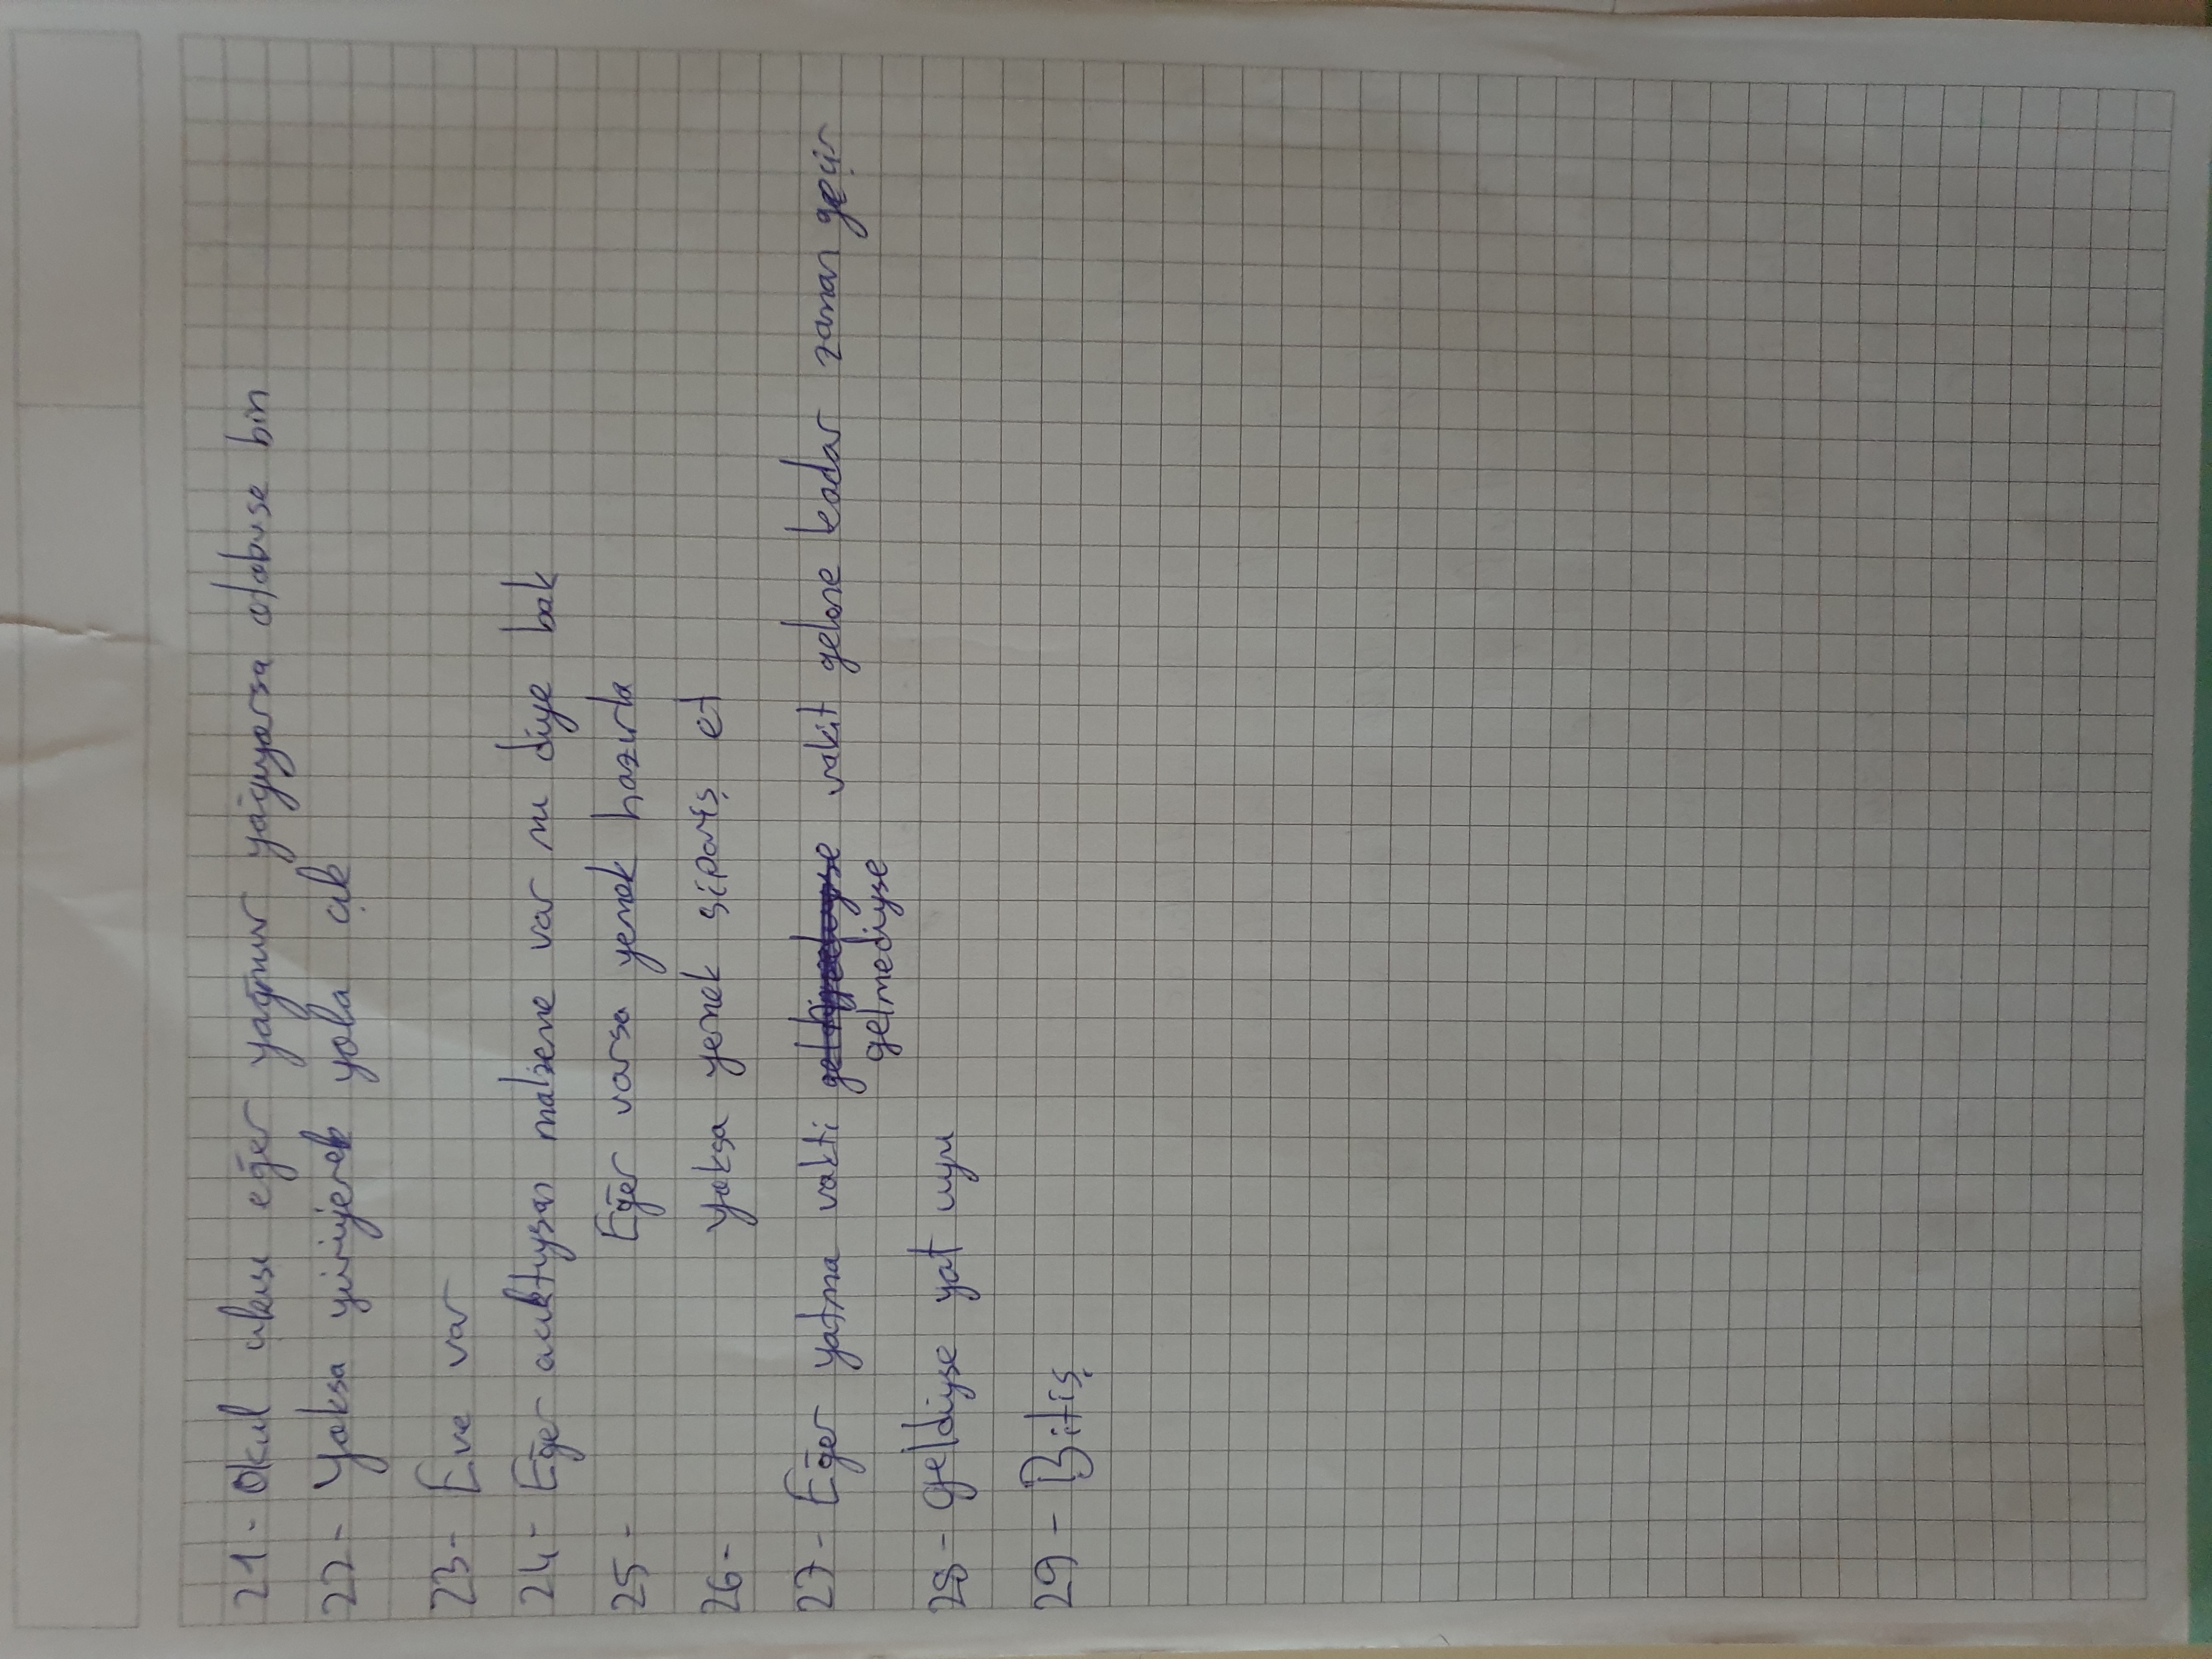 21- Okul çıkışı eğer yağmur yağıyorsa otobüse bin
22- Yoksa yürüyerek yola çık
23- Eve var
24- Eğer acıktıysan malzeme var mı diye bak
25- Eğer varsa yemek hazırla
26- Yoksa yemek sipariş et
27- Eğer yatma vakti vakit gelene kadar zaman geçir
gelmediyse
28- geldiyse yat uyu
29- Bitiş